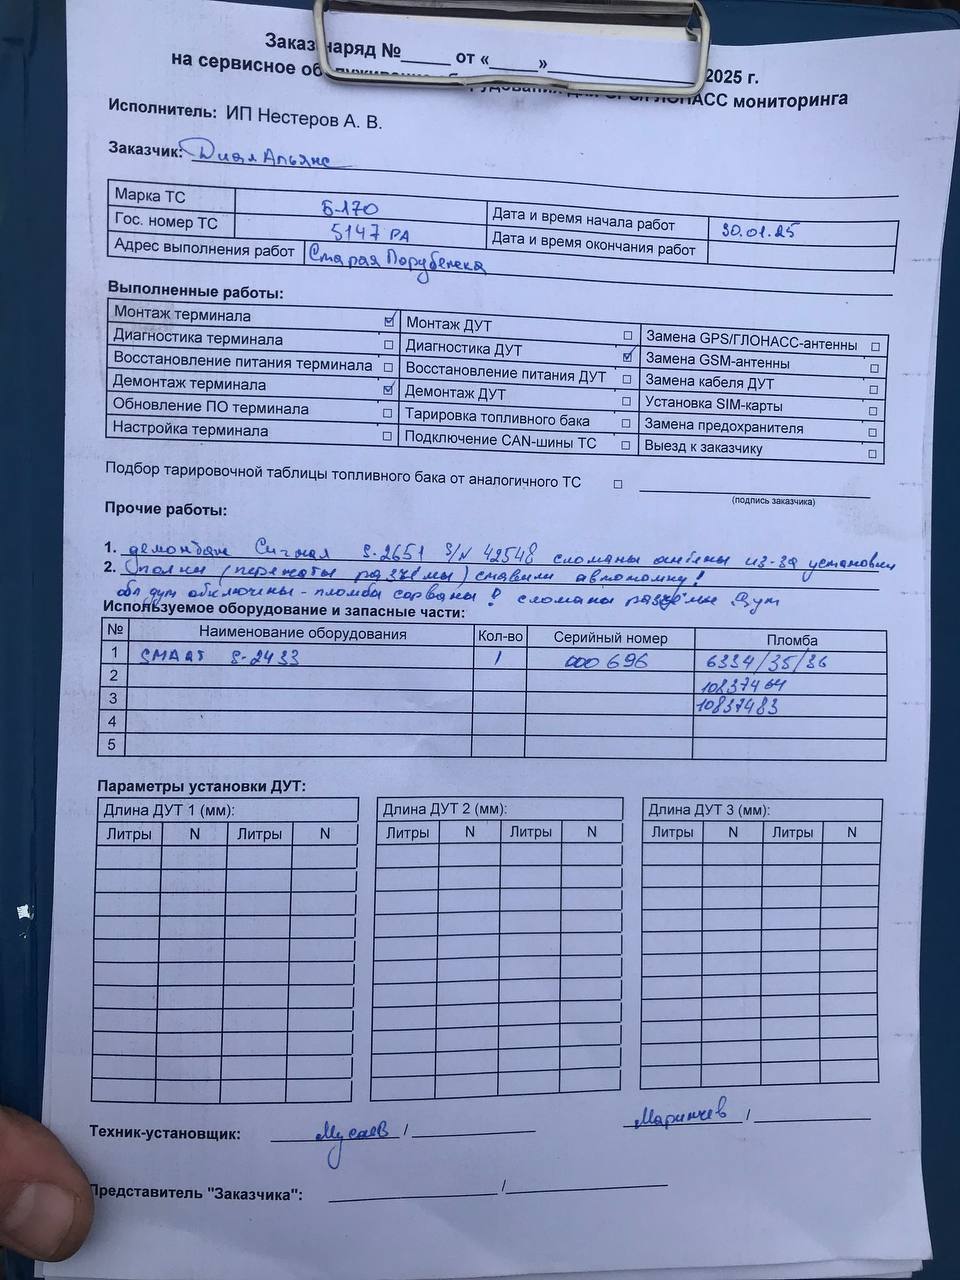 Заказ наряд №_____ от «_____»_______________ 2025 г.
на сервисное ГЛОНАСС мониторинга
Исполнитель: ИП Нестеров А. В.
Заказчик: ДиалАльянс
Марка ТС Б-170 Дата и время начала работ 30.01.25
Гос. номер ТС 5147 РА Дата и время окончания работ
Адрес выполнения работ Старая Порубежка
Выполненные работы:
Монтаж терминала ☑ Монтаж ДУТ ☐ Замена GPS/ГЛОНАСС-антенны ☐
Диагностика терминала ☐ Диагностика ДУТ ☑ Замена GSM-антенны ☐
Восстановление питания терминала ☐ Восстановление питания ДУТ ☐ Замена кабеля ДУТ ☐
Демонтаж терминала ☑ Демонтаж ДУТ ☐ Установка SIM-карты ☐
Обновление ПО терминала ☐ Тарировка топливного бака ☐ Замена предохранителя ☐
Настройка терминала ☐ Подключение CAN-шины ТС ☐ Выезд к заказчику ☐
Подбор тарировочной таблицы топливного бака от аналогичного ТС ☐
(подпись заказчика)
Прочие работы:
1. демонтаж Сигнал S-2651 S/N 42548 сломаны антены из-за установки
2. полки (пережаты разъёмы) ставили автономку!
оба дут отключены - пломбы сорваны! сломаны разъёмы Дут
Используемое оборудование и запасные части:
№ Наименование оборудования Кол-во Серийный номер Пломба
1 SMART S-2433 1 000696 6334/35/36
2 10837464
3 10837483
4
5
Параметры установки ДУТ:
Длина ДУТ 1 (мм): Длина ДУТ 2 (мм): Длина ДУТ 3 (мм):
Литры N Литры N Литры N Литры N Литры N Литры N
Техник-установщик: Мусаев / Маринчев /
Представитель "Заказчика": /